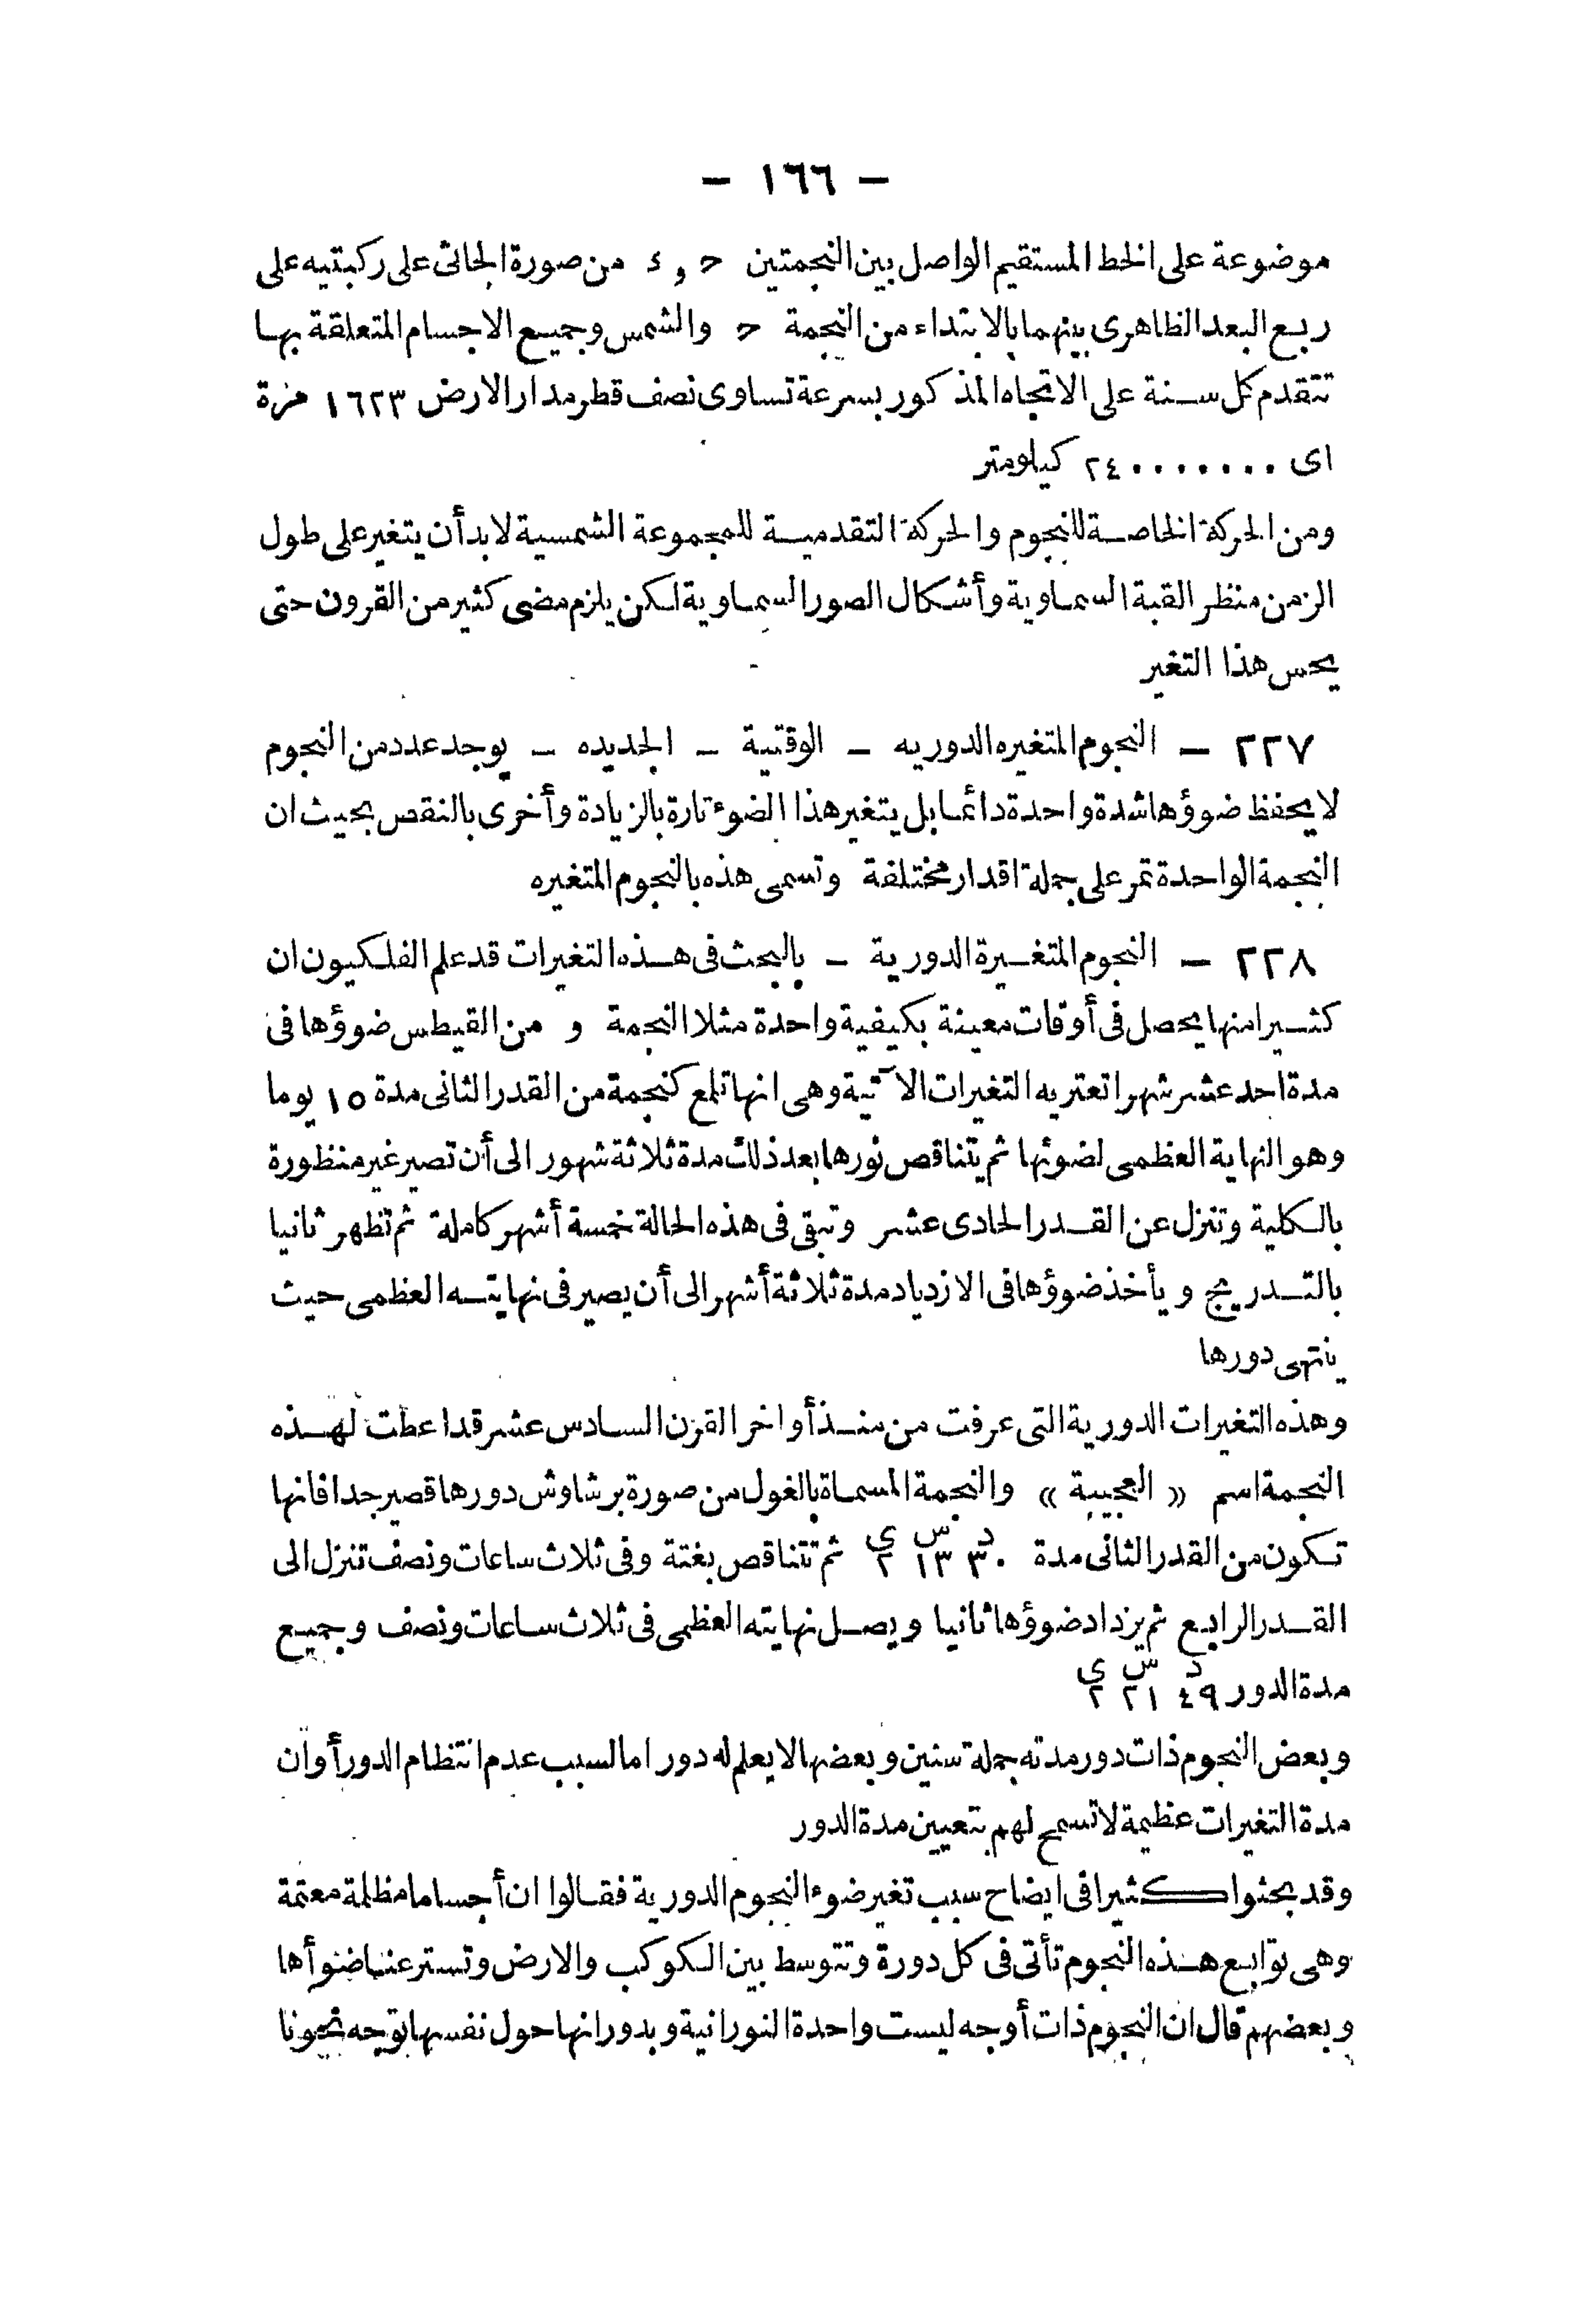 — ١٦٦ —
موضوعة على الخط المستقيم الواصل بين النجمتين ح و د من صورة الجاثى على ركبتيه على
ربع البعد الظاهرى بينهما بالابتداء من النجمة ح والشمس وجميع الاجسام المتعلقة بها
تتقدم كل سنة على الاتجاه المذكور بسرعة تساوى نصف قطر مدار الارض ١٦٢٣ مرة
اى ٢٤٠٠٠٠٠٠٠ كيلومتر
ومن الحركة الخاصة للنجوم والحركة التقدمية للمجموعة الشمسية لابد أن يتغير على طول
الزمن منظر القبة السماوية وأشكال الصور السماوية لكن يلزم مضى كثير من القرون حتى
يحس هذا التغير
٢٢٧ — النجوم المتغيره الدوريه — الوقتية — الجديده — يوجد عدد من النجوم
لا يحفظ ضوؤها شدة واحدة دائما بل يتغير هذا الضوء تارة بالزيادة وأخرى بالنقص بحيث ان
النجمة الواحدة تمر على جملة اقدار مختلفة وتسمى هذه بالنجوم المتغيره
٢٢٨ — النجوم المتغيرة الدورية — بالبحث فى هذه التغيرات قد علم الفلكيون ان
كثيرا منها يحصل فى أوقات معينة بكيفية واحدة مثلا النجمة و من القيطس ضوؤها فى
مدة احد عشر شهرا تعتريه التغيرات الآتية وهى انها تلمع كنجمة من القدر الثانى مدة ١٥ يوما
وهو النهاية العظمى لضوئها ثم يتناقص نورها بعد ذلك مدة ثلاثة شهور الى أن تصير غير منظورة
بالكلية وتنزل عن القدر الحادى عشر وتبقى فى هذه الحالة خمسة أشهر كاملة ثم تظهر ثانيا
بالتدريج ويأخذ ضوؤها فى الازدياد مدة ثلاثة أشهر الى أن يصير فى نهايته العظمى حيث
ينتهى دورها
وهذه التغيرات الدورية التى عرفت من منذ أواخر القرن السادس عشر قد اعطت لهذه
النجمة اسم « العجيبة » والنجمة المسماة بالغول من صورة برشاوش دورها قصير جدا فانها
تكون من القدر الثانى مدة ٣٠د ١٣س ٢ى ثم تتناقص بغتة وفى ثلاث ساعات ونصف تنزل الى
القدر الرابع ثم يزداد ضوؤها ثانيا ويصل نهايته العظمى فى ثلاث ساعات ونصف وجميع
مدة الدور ٤٩د ٢١س ٢ى
وبعض النجوم ذات دور مدته جملة سنين وبعضها لا يعلم له دور اما لسبب عدم انتظام الدور أو ان
مدة التغيرات عظيمة لا تسمح لهم بتعيين مدة الدور
وقد بحثوا كثيرا فى ايضاح سبب تغير ضوء النجوم الدورية فقالوا ان أجساما مظلمة معتمة
وهى توابع هذه النجوم تأتى فى كل دورة وتتوسط بين الكوكب والارض وتستر عنا ضوأها
وبعضهم قال ان النجوم ذات أوجه ليست واحدة النورانية وبدورانها حول نفسها توجه نحونا